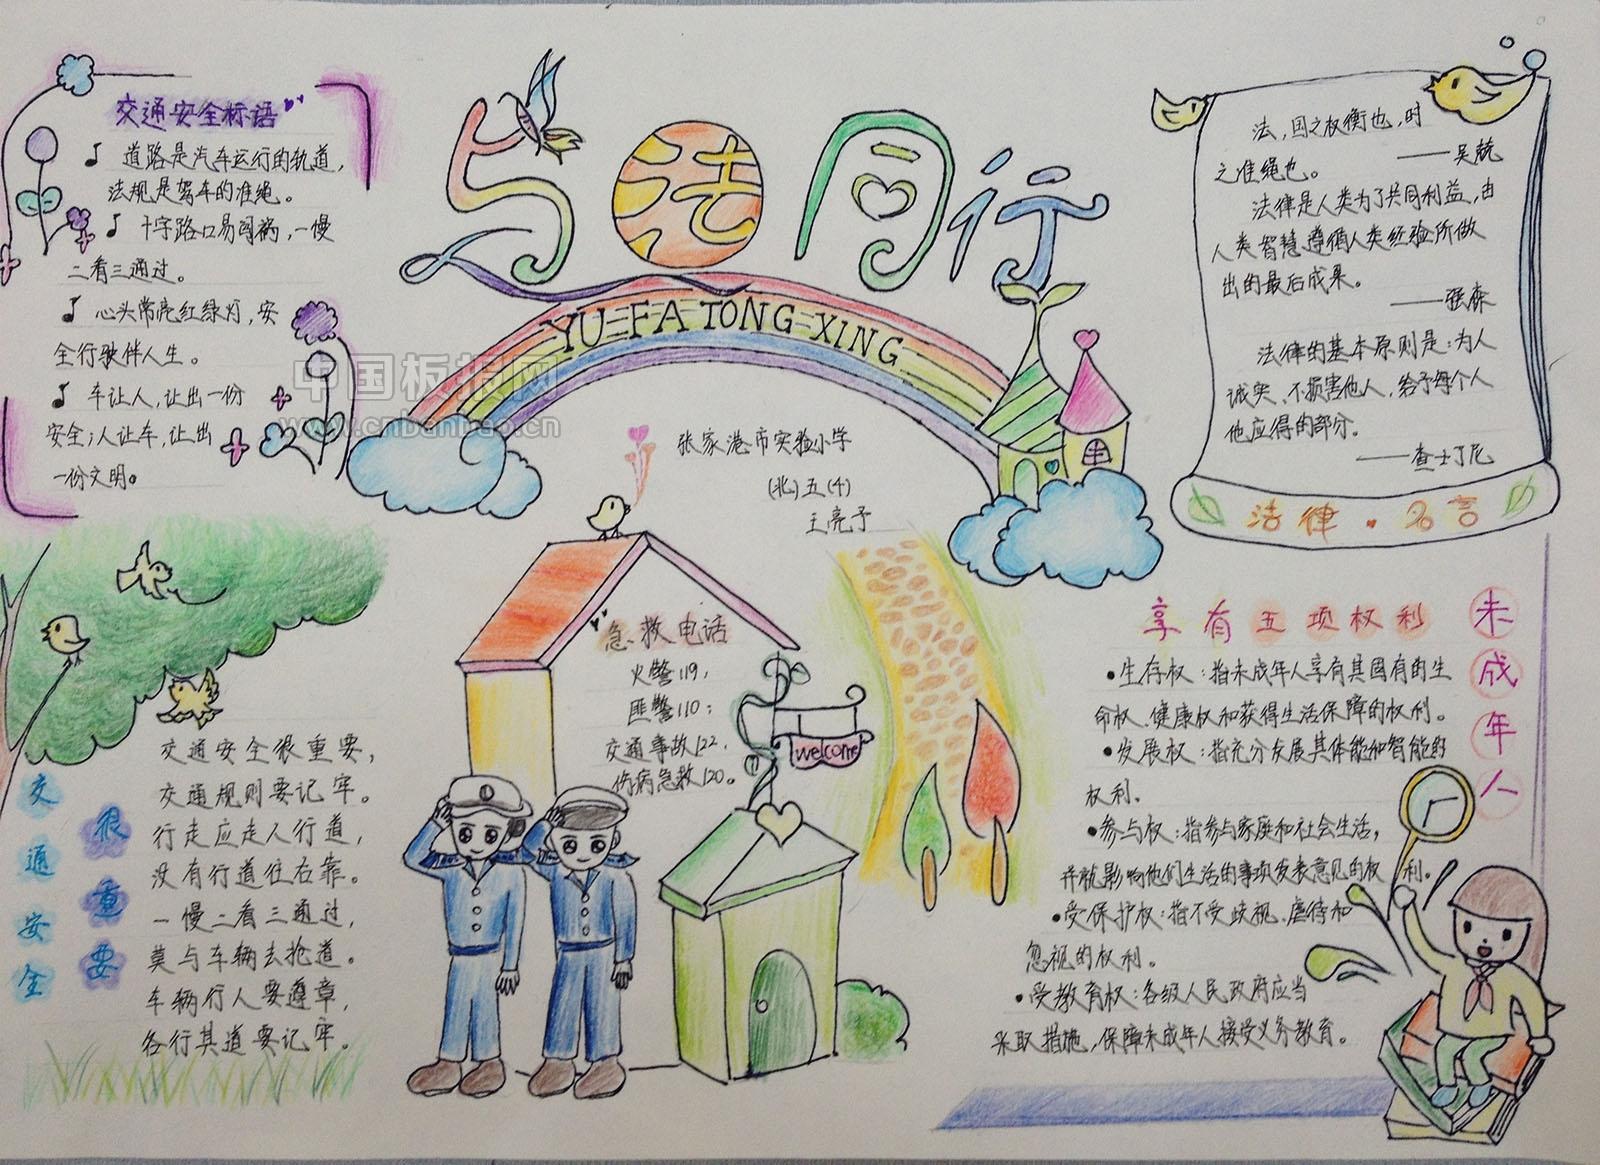 与法同行
YU FA TONG XING
张家港市实验小学
(北)五(4)
王亮予
交通安全标语
道路是汽车运行的轨道,
法规是驾车的准绳。
十字路口易闯祸,一慢
二看三通过。
心头常亮红绿灯,安
全行驶伴人生。
车让人,让出一份
安全;人让车,让出
一份文明。
中国板报网
www.cnbanbao.cn
法,国之权衡也,时
之准绳也。
——吴兢
法律是人类为了共同利益,由
人类智慧遵循人类经验所做
出的最后成果。
——强森
法律的基本原则是:为人
诚实、不损害他人,给予每个人
他应得的部分。
——查士丁尼
法律·名言
交通安全
很重要
交通安全很重要,
交通规则要记牢。
行走应走人行道,
没有行道往右靠。
一慢二看三通过,
莫与车辆去抢道。
车辆行人要遵章,
各行其道要记牢。
急救电话
火警119,
匪警110;
交通事故122,
伤病急救120。
welcome
未成年人
享有五项权利
•生存权:指未成年人享有其固有的生
命权、健康权和获得生活保障的权利。
•发展权:指充分发展其体能和智能的
权利、
•参与权:指参与家庭和社会生活,
并就影响他们生活的事项发表意见的权利。
•受保护权:指不受歧视、虐待和
忽视的权利。
•受教育权:各级人民政府应当
采取措施,保障未成年人接受义务教育。